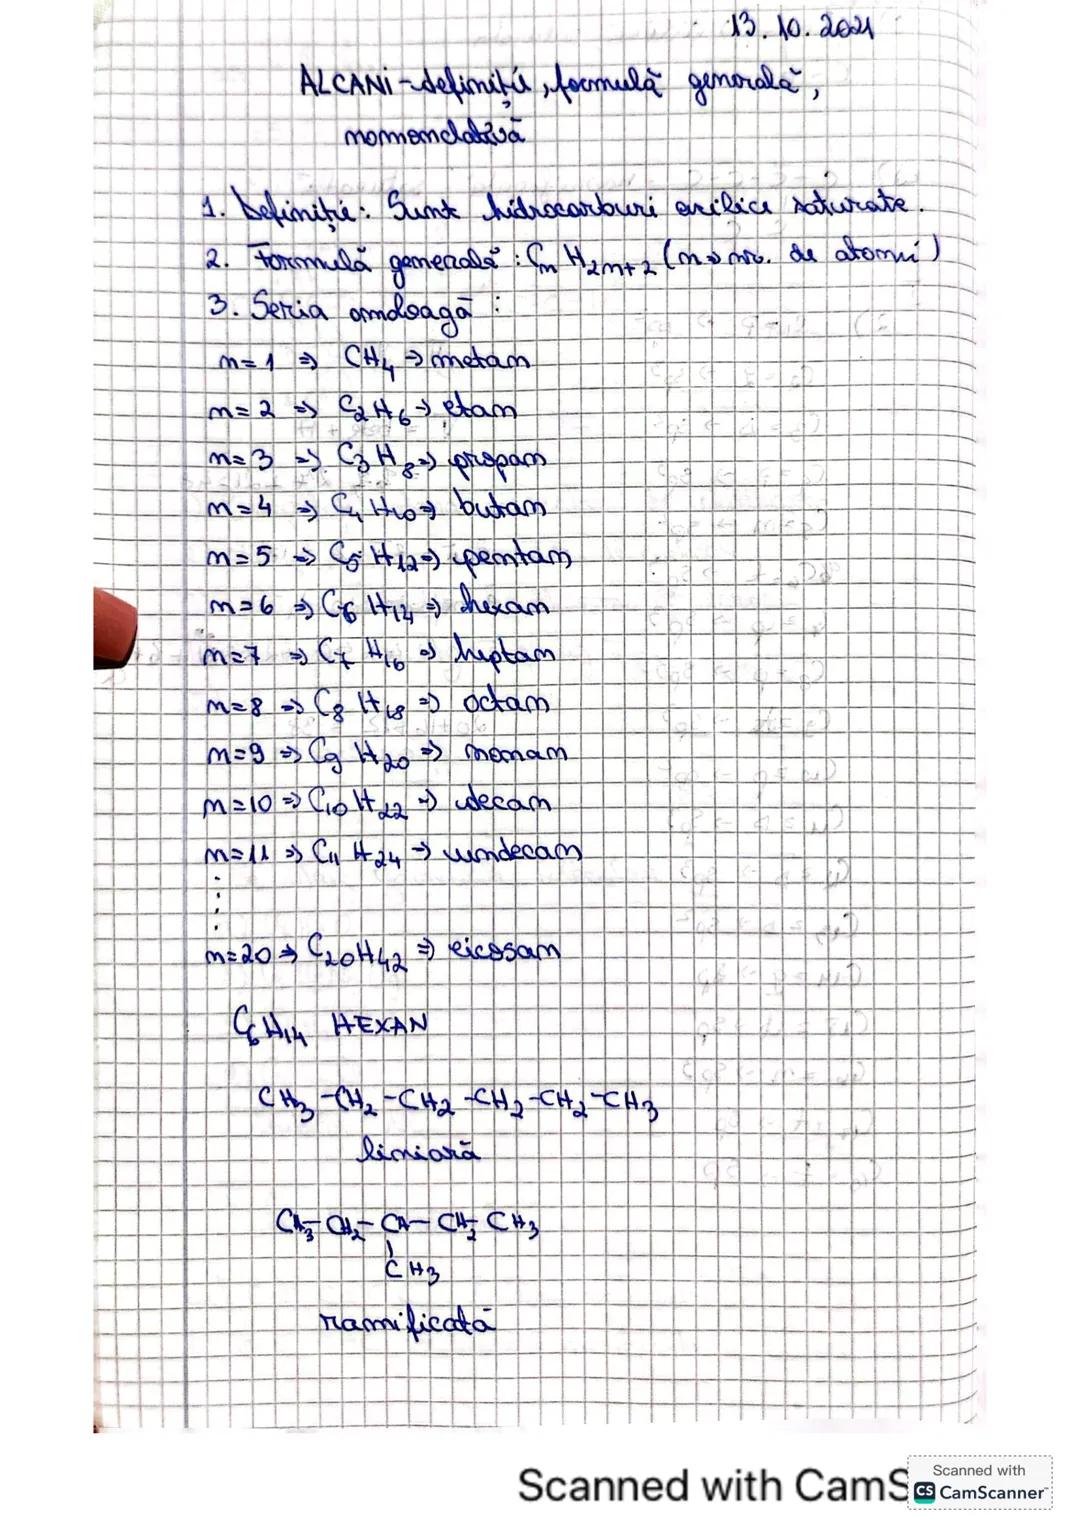 13.10.2021
ALCANi - definiții, formulă generală,
nomenclatură
1. Definiție: Sunt hidrocarburi acilice saturate.
2. Formulă generală: CnH2n+2 (n => nr. de atomi)
3. Seria omoloagă:
n=1 => CH4 => metan
n=2 => C2H6 => etan
n=3 => C3H8 => propan
n=4 => C4H10 => butan
n=5 => C5H12 => pentan
n=6 => C6H14 => hexan
n=7 => C7H16 => heptan
n=8 => C8H18 => octan
n=9 => C9H20 => nonan
n=10 => C10H22 => decan
n=11 => C11H24 => undecan
n=20 => C20H42 => eicosan
C6H14 HEXAN
CH3-CH2-CH2-CH2-CH2-CH3
liniară
CH3-CH2-CH-CH2-CH3
CH3
ramificată
Scanned with CamS
Scanned with
CS CamScanner